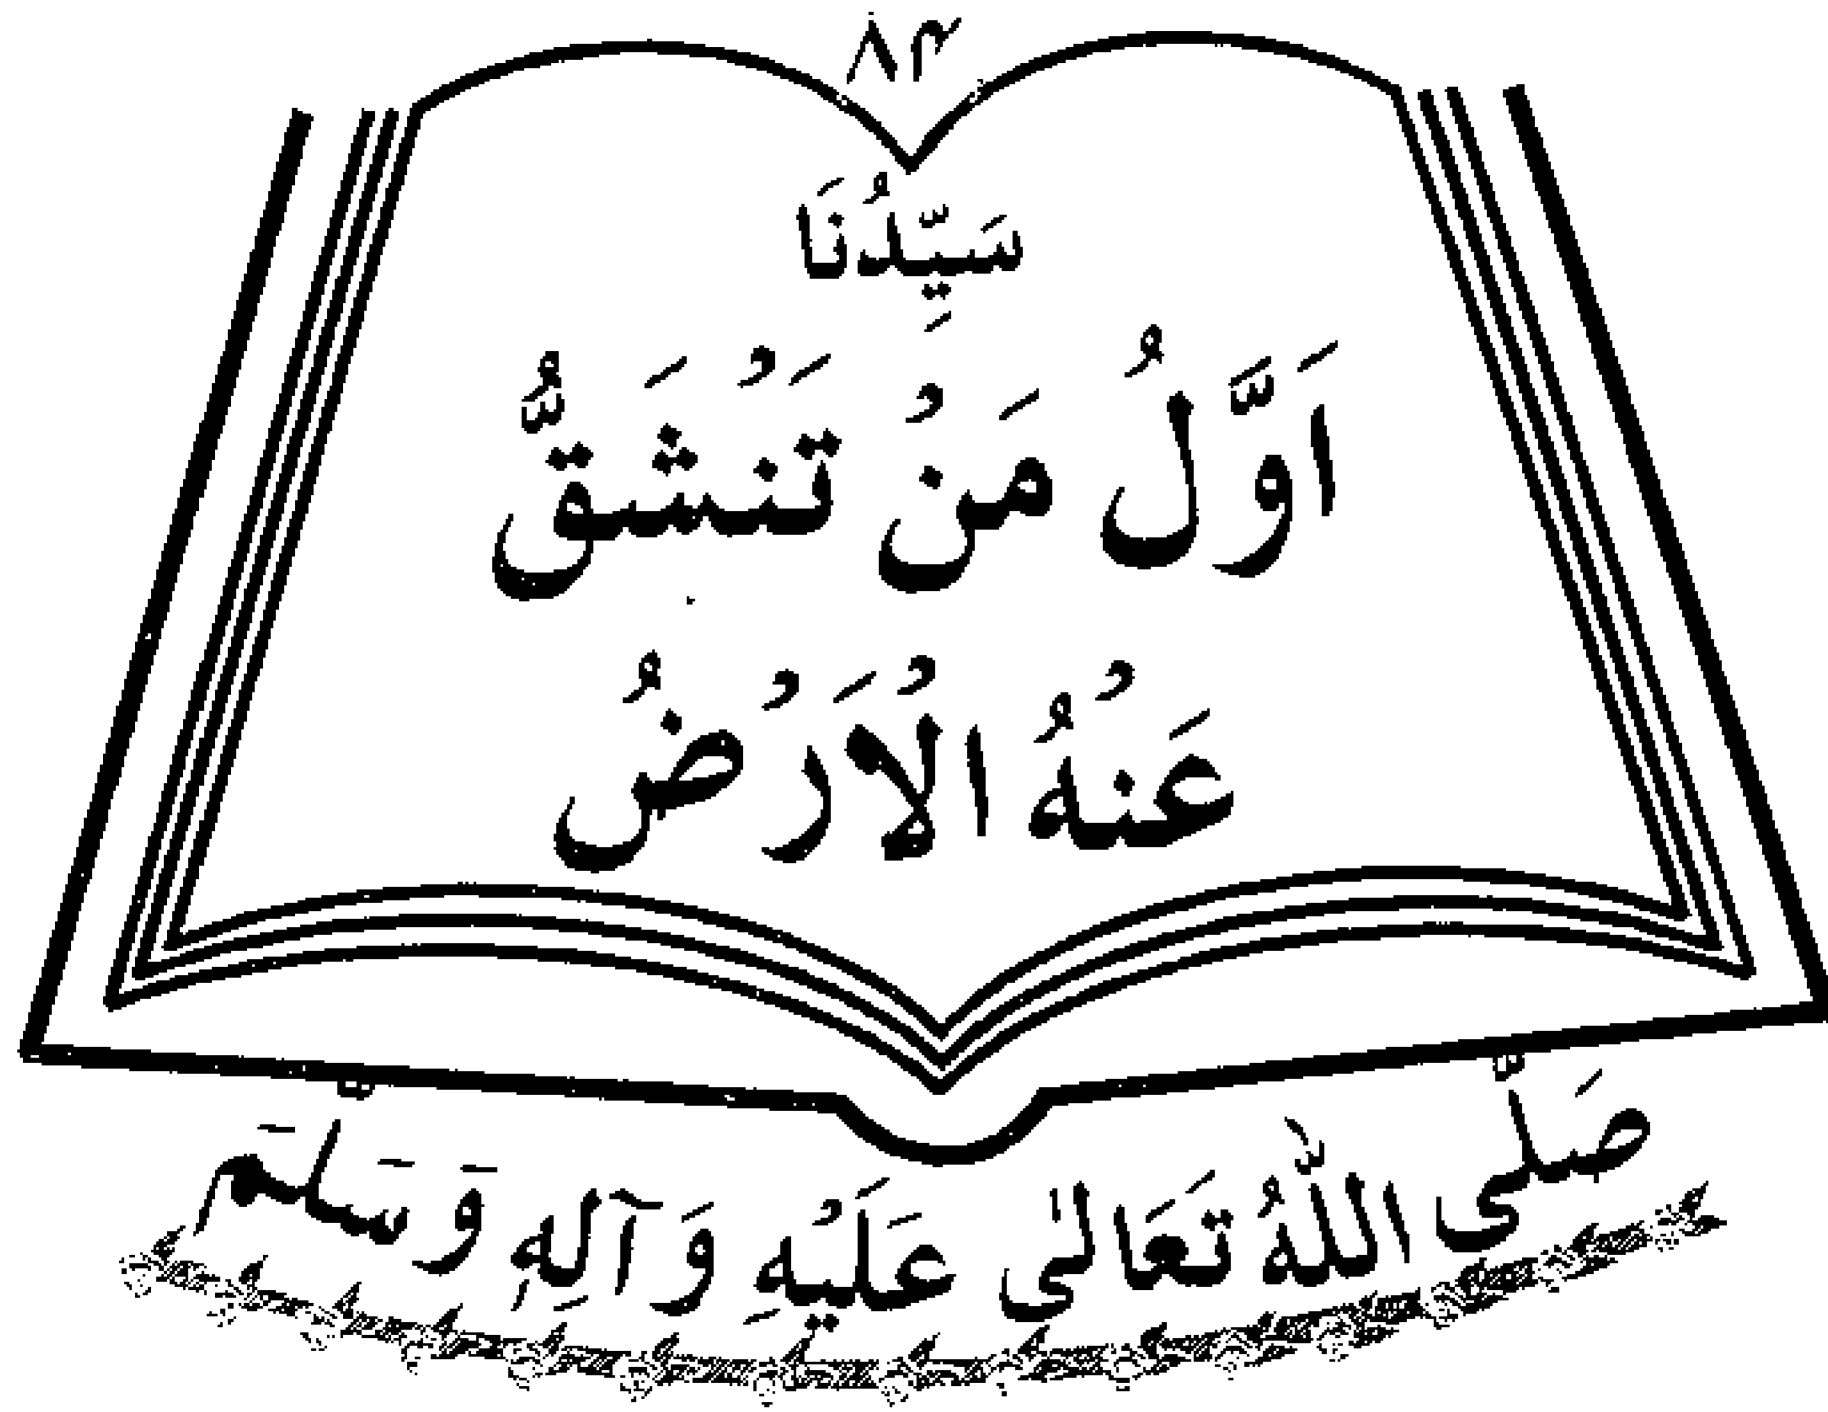 ۸۴
سَیِّدُنَا
اَوَّلُ مَنْ تَنْشَقُّ
عَنْهُ الْاَرْضُ
صَلَّی اللّٰهُ تَعَالٰی عَلَیْهِ وَ آلِهٖ وَ سَلَّمَ